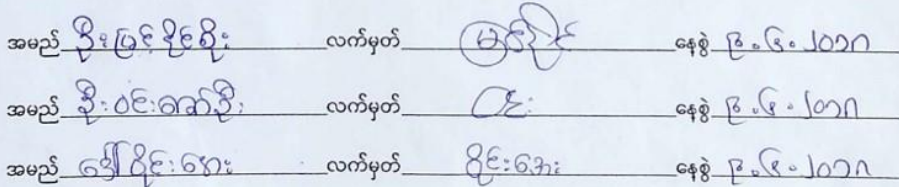 အမည် ဦးမြင့်နိုင်စိုး လက်မှတ် နေ့စွဲ ၉.၆.၂၀၁၈
အမည် ဦးဝင်းဇော်ဦး လက်မှတ် ဝင်း နေ့စွဲ ၉.၆.၂၀၁၈
အမည် ဒေါ်ခိုင်းအေး လက်မှတ် ခိုင်းအေး နေ့စွဲ ၉.၆.၂၀၁၈